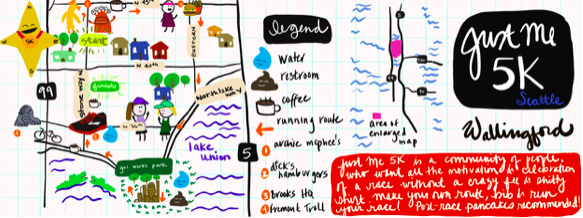 5K
N 45th
start
eastern
N 40th
99
stone way N
finish
Northlake way
N 34th
lake union
5
gas works park
legend
water
restroom
coffee
running route
1 archie mcphee's
2 dick's hamburgers
3 Brooks HQ
4 Fremont Troll
area of enlarged map
Just Me
5K
Seattle
Wallingford
Just Me 5K is a community of people
who want all the motivation & celebration
of a race without a crazy fee & smelly
shirt. make your own rout, this is run
your race! Post-race pancakes recommended.